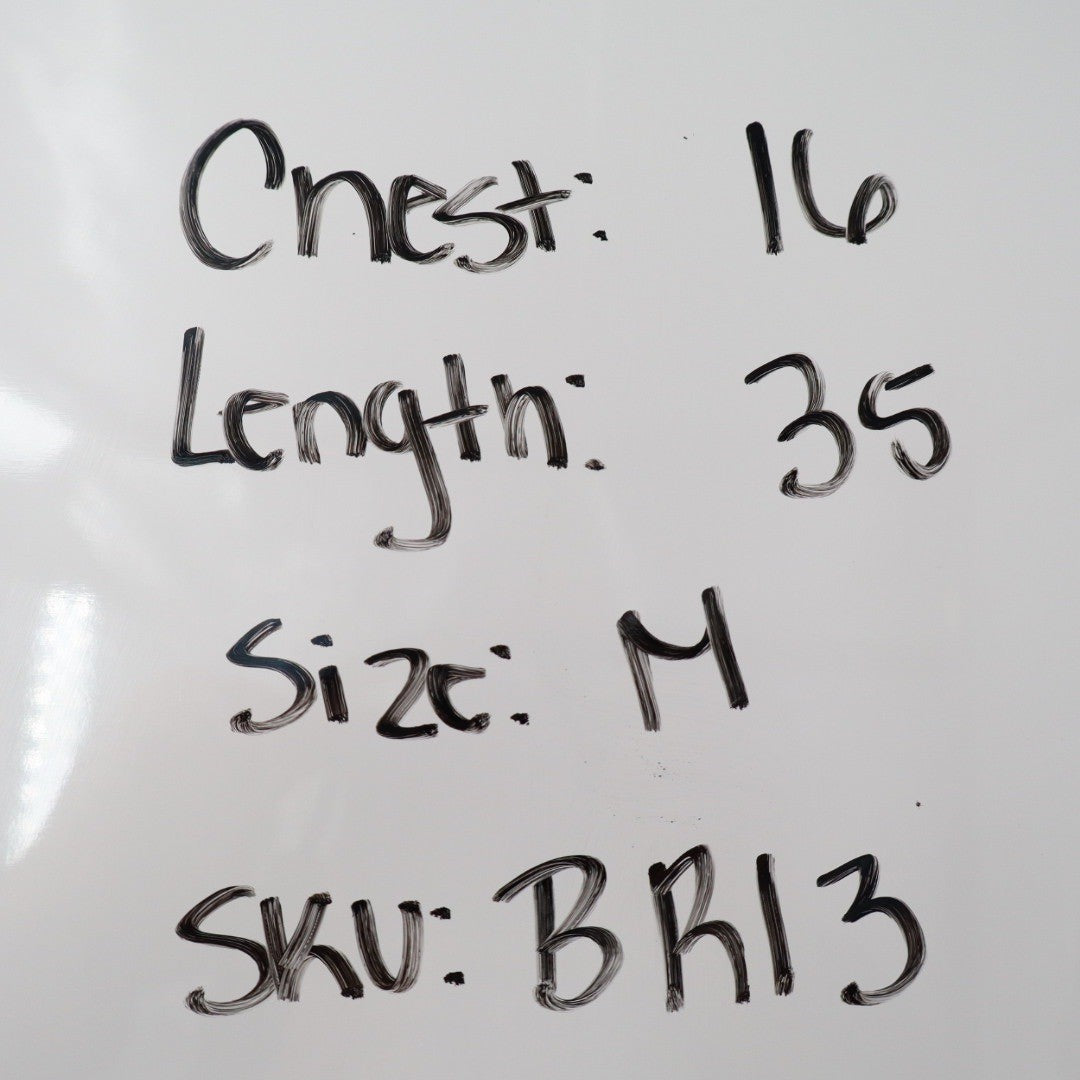 Chest: 16
Length: 35
Size: M
SKU: BR13